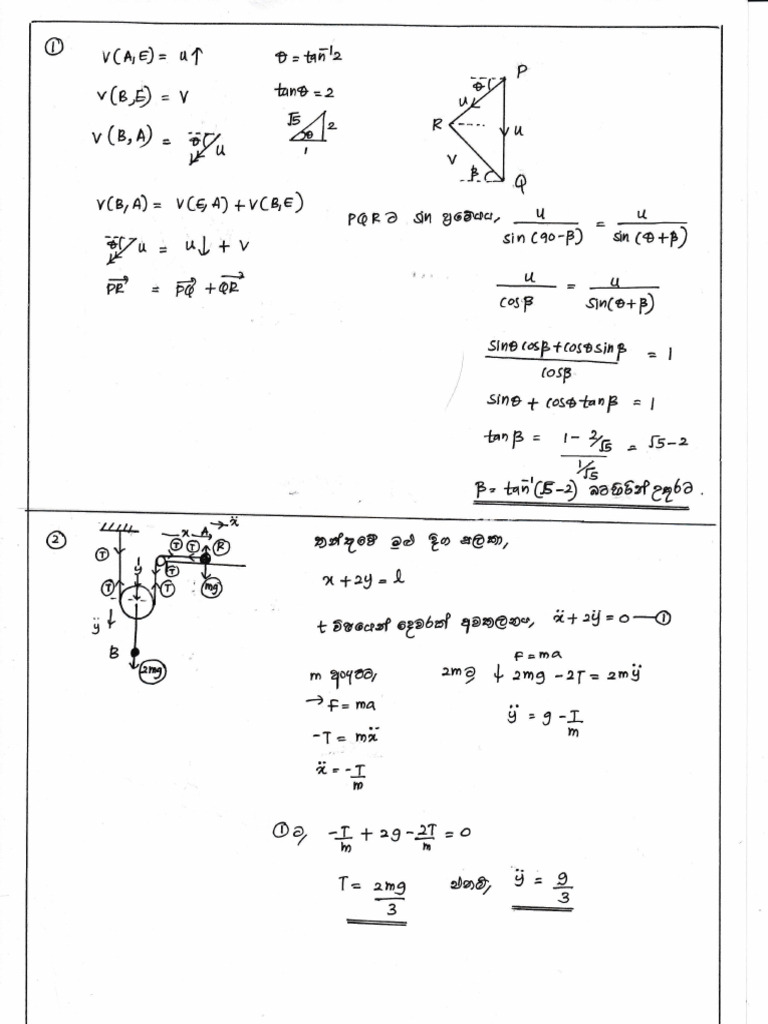 ①
V(A,E) = u↑
V(B,E) = V
V(B,A) = θ u
θ = tan⁻¹2
tanθ = 2
√5 2 θ 1
P
θ
u
R
u
V
β
Q
V(B,A) = V(E,A) + V(B,E)
θ u = u↓ + V
PR⃗ = PQ⃗ + QR⃗
PQR ට sin ප්‍රමේයය, u/sin(90-β) = u/sin(θ+β)
u/cosβ = u/sin(θ+β)
(sinθcosβ+cosθsinβ)/cosβ = 1
sinθ + cosθtanβ = 1
tanβ = (1 - 2/√5)/(1/√5) = √5-2
β = tan⁻¹(√5-2) බටහිරින් උතුරට.
②
ẍ
x A
T T T R
T
y
T T
mg
ÿ
B
2mg
තන්තුවේ මුළු දිග සලකා,
x + 2y = l
t විෂයෙන් දෙවරක් අවකලනය, ẍ + 2ÿ = 0 —①
m අංශුවට,
→ F = ma
-T = mẍ
ẍ = -T/m
2m ට F = ma
↓ 2mg - 2T = 2mÿ
ÿ = g - T/m
① ට, -T/m + 2g - 2T/m = 0
T = 2mg/3 එනම්, ÿ = g/3